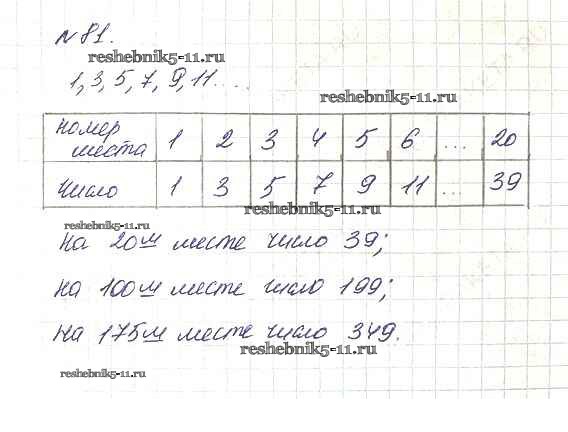 № 81.
reshebnik5-11.ru
1, 3, 5, 7, 9, 11....
reshebnik5-11.ru
номер места 1 2 3 4 5 6 ... 20
число 1 3 5 7 9 11 ... 39
reshebnik5-11.ru
reshebnik5-11.ru
на 20м месте число 39;
на 100м месте число 199;
на 175м месте число 349.
reshebnik5-11.ru
reshebnik5-11.ru